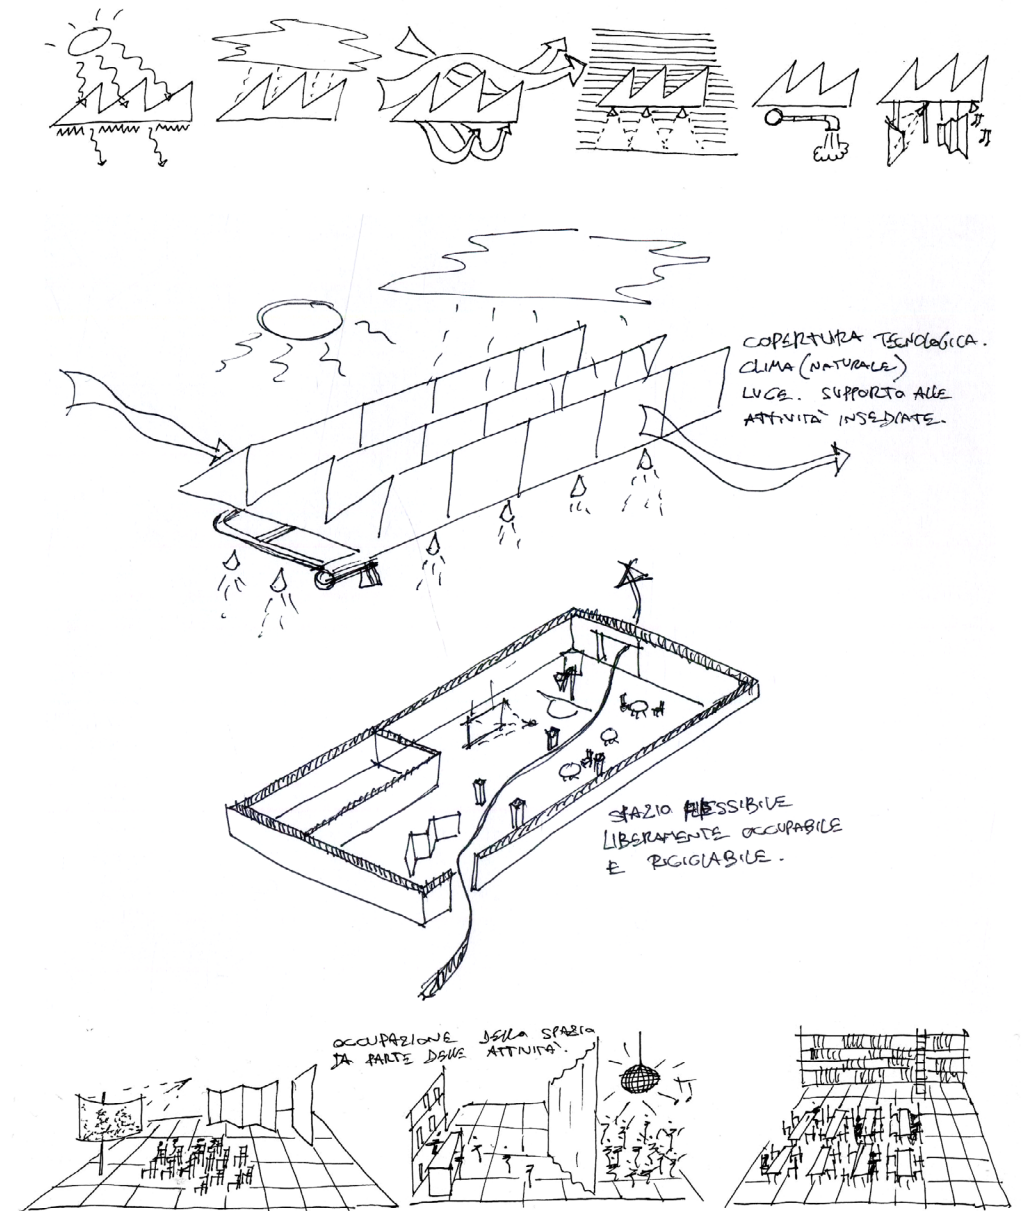 COPERTURA TECNOLOGICA.
CLIMA (NATURALE)
LUCE. SUPPORTO ALLE
ATTIVITÀ INSEDIATE.
SPAZIO FLESSIBILE
LIBERAMENTE OCCUPABILE
E RICICLABILE.
OCCUPAZIONE DELLO SPAZIO
DA PARTE DELLE ATTIVITÀ.